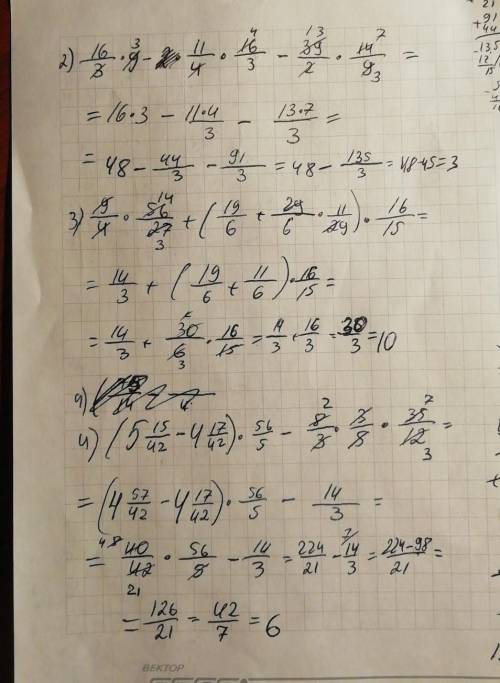 2) 16/3 · 9 3 - 11/4 · 16 4/3 - 39 13/2 · 14 7/9 3 =
= 16·3 - 11·4/3 - 13·7/3 =
= 48 - 44/3 - 91/3 = 48 - 135/3 = 48-45=3
3) 9/4 · 56 14/27 3 + (19/6 + 29/6 · 11/29) · 16/15 =
= 14/3 + (19/6 + 11/6) · 16/15 =
= 14/3 + 30/6 3 · 16/15 = 14/3 + 16/3 = 30/3 = 10
4)
4) (5 15/42 - 4 17/42) · 56/5 - 8 2/3 · 3/8 · 35 7/12 3 =
= (4 57/42 - 4 17/42) · 56/5 - 14/3 =
= 40/42 21 · 56/5 - 14/3 = 224/21 - 14/3 7 = 224-98/21 =
= 126/21 = 42/7 = 6
ВЕКТОР